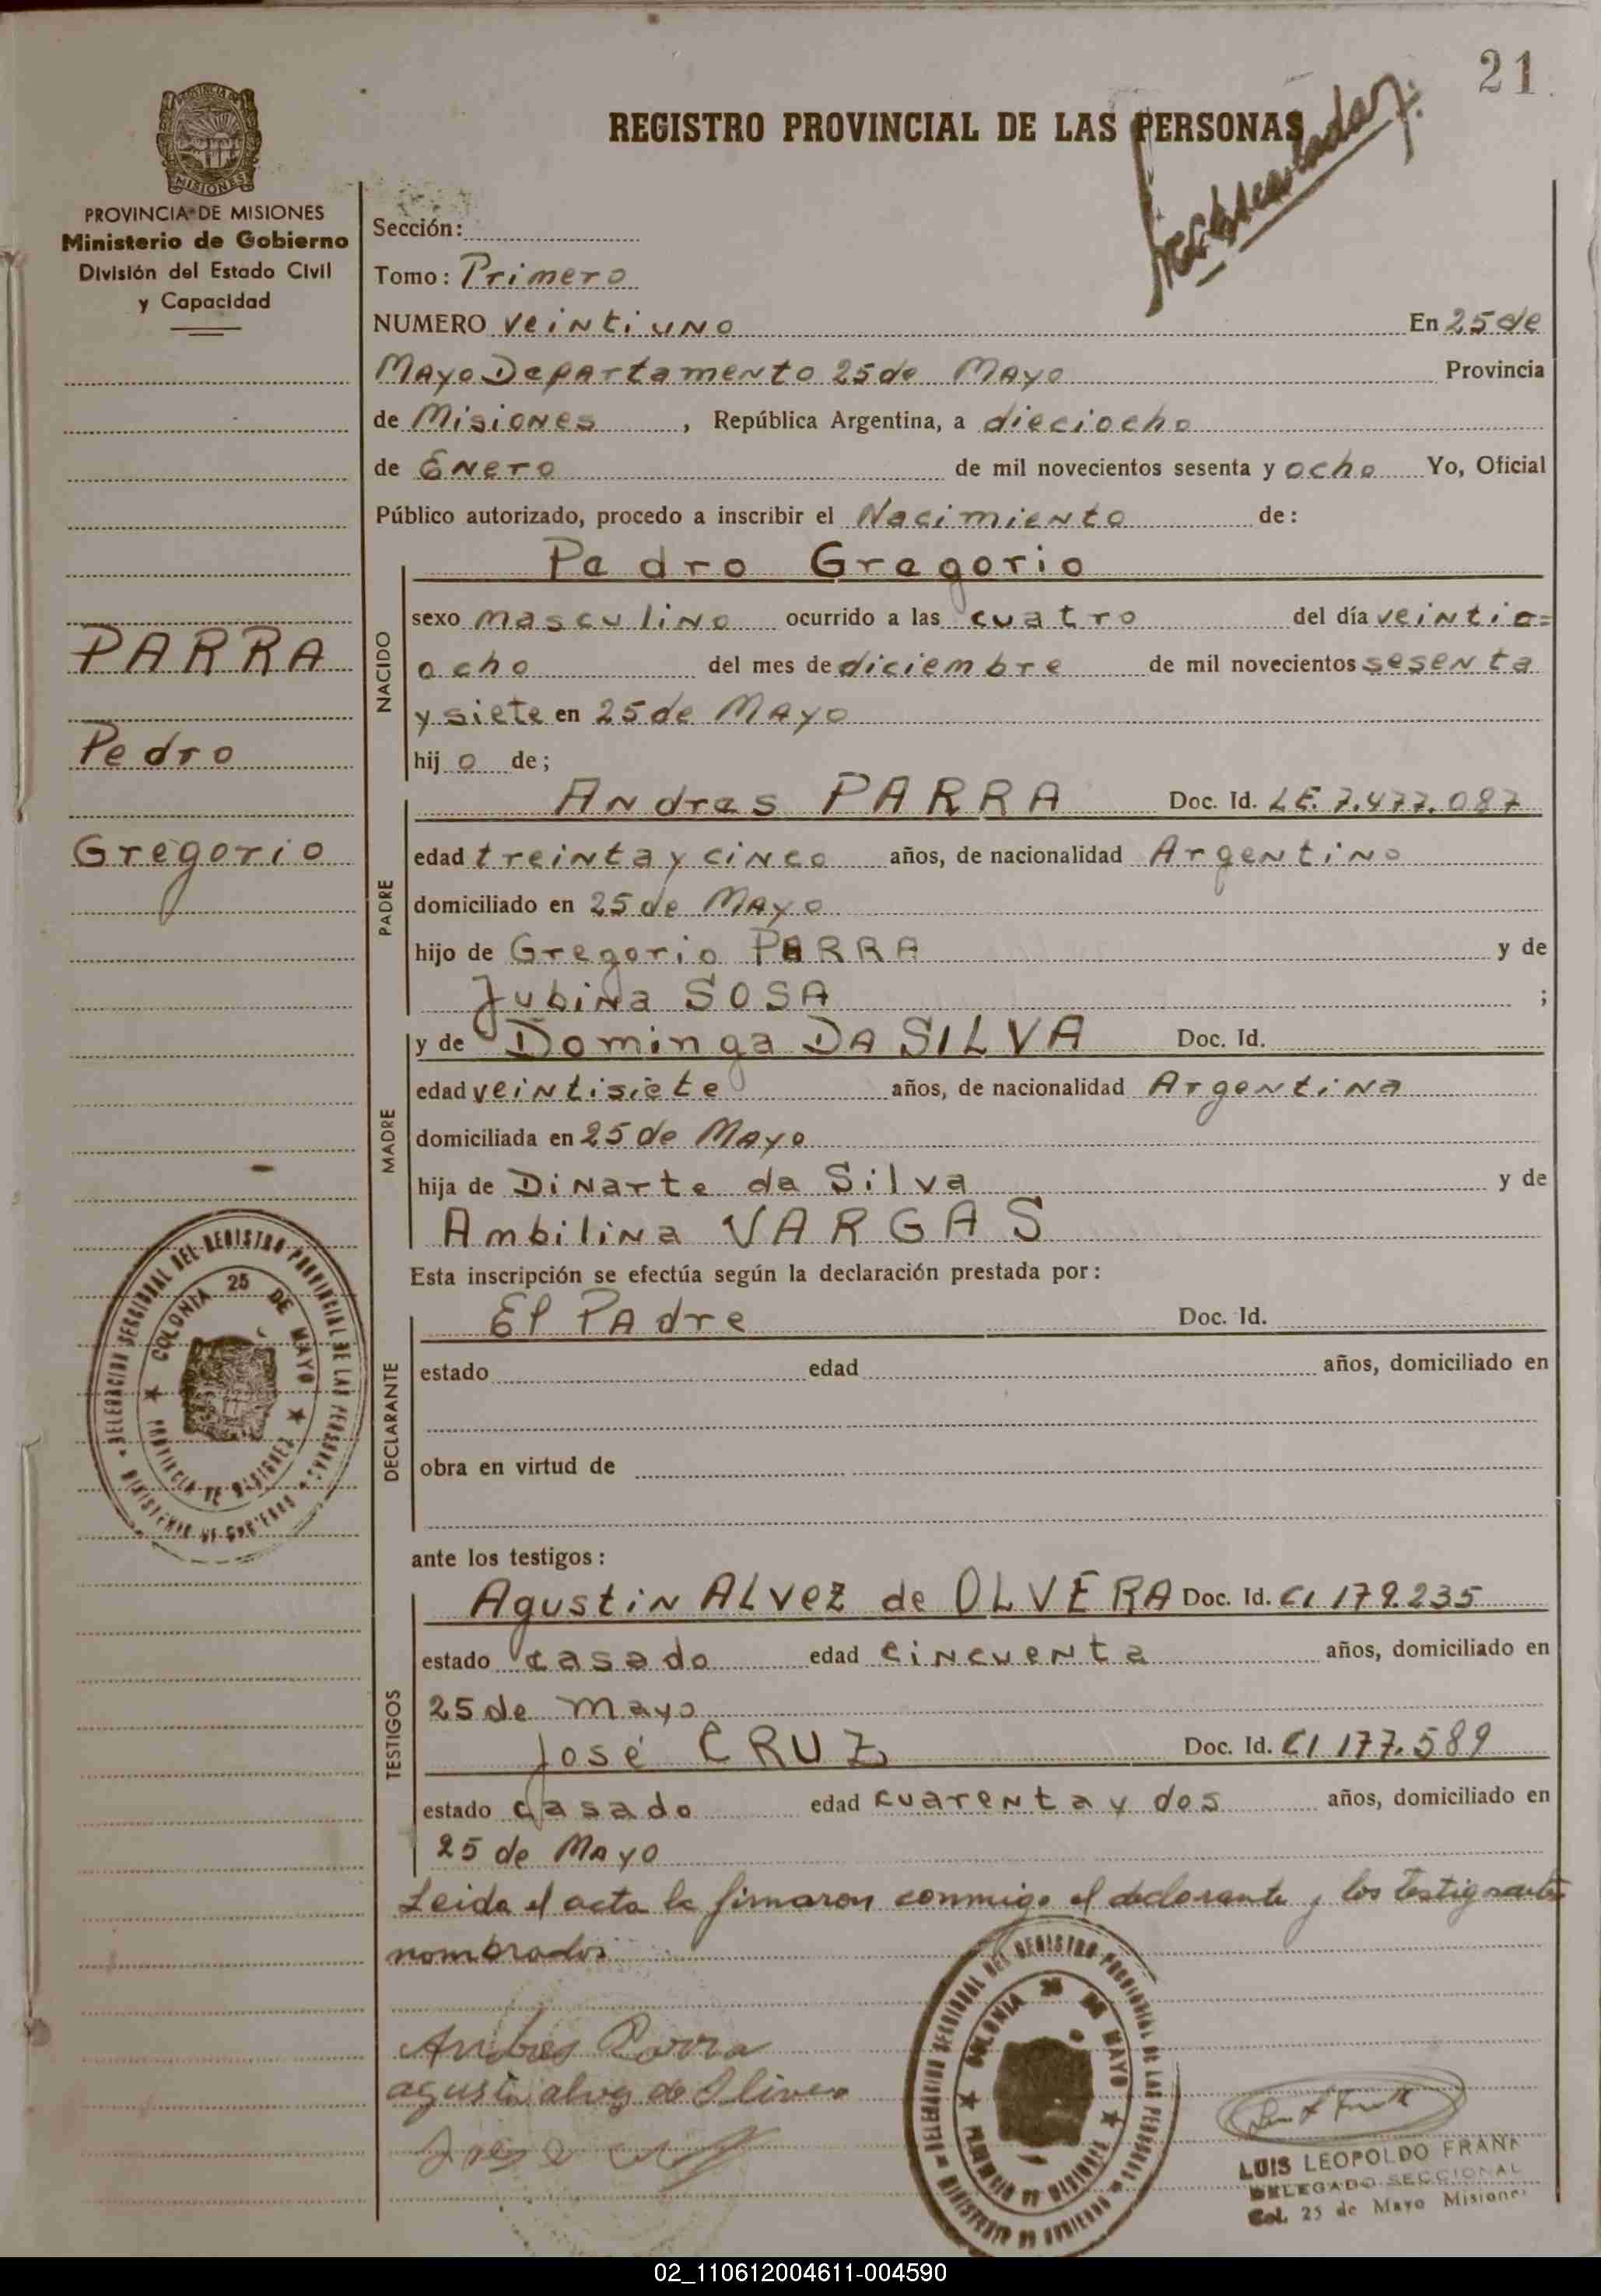 21
REGISTRO PROVINCIAL DE LAS PERSONAS
MISIONES
PROVINCIA DE MISIONES
Ministerio de Gobierno
División del Estado Civil
y Capacidad
Sección:
Tomo: Primero
NUMERO veintiuno En 25 de
Mayo Departamento 25 de Mayo Provincia
de Misiones, República Argentina, a dieciocho
de Enero de mil novecientos sesenta y ocho Yo, Oficial
Público autorizado, procedo a inscribir el Nacimiento de:
Pedro Gregorio
sexo masculino ocurrido a las cuatro del día veintio=
ocho del mes de diciembre de mil novecientos sesenta
y siete en 25 de Mayo
hijo de;
NACIDO
PARRA
Pedro
Gregorio
Andres PARRA Doc. Id. LE. 7.477.087
edad treinta y cinco años, de nacionalidad Argentino
domiciliado en 25 de Mayo
hijo de Gregorio PARRA y de
Jubina SOSA ;
PADRE
y de Dominga DA SILVA Doc. Id.
edad veintisiete años, de nacionalidad Argentina
domiciliada en 25 de Mayo
hija de Dinarte da Silva y de
Ambilina VARGAS
MADRE
Esta inscripción se efectúa según la declaración prestada por:
El Padre Doc. Id.
estado edad años, domiciliado en
obra en virtud de
DECLARANTE
DELEGACION SECCIONAL DEL REGISTRO PROVINCIAL DE LAS PERSONAS
MINISTERIO DE GOBIERNO
COLONIA 25 DE MAYO
PROVINCIA DE MISIONES
ante los testigos:
Agustin ALVEZ de OLVERA Doc. Id. CI 179.235
estado casado edad cincuenta años, domiciliado en
25 de mayo
José CRUZ Doc. Id. CI 177.589
estado casado edad cuarenta y dos años, domiciliado en
25 de Mayo
TESTIGOS
Leida el acta la firmaron conmigo el declarante y los testigos
nombrados
Andres Parra
agustin alvez de Olivera
DELEGACION SECCIONAL DEL REGISTRO PROVINCIAL DE LAS PERSONAS
MINISTERIO DE GOBIERNO
COLONIA 25 DE MAYO
PROVINCIA DE MISIONES
LUIS LEOPOLDO FRANK
DELEGADO SECCIONAL
Col. 25 de Mayo Misiones
02_110612004611-004590